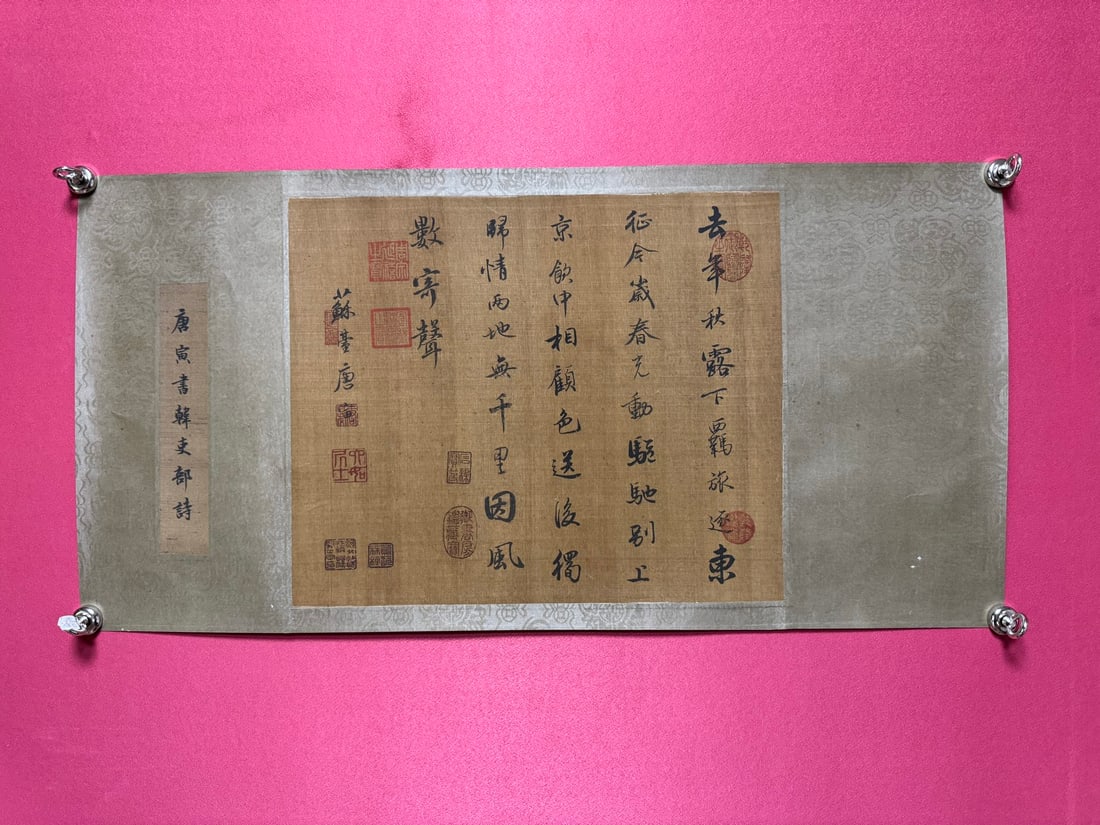 去年秋露下羈旅逐東
征今歲春光動驅馳別上
京飲中相顧色送後獨
歸情兩地無千里因風
數寄聲
蘇臺唐寅
唐寅書韓吏部詩